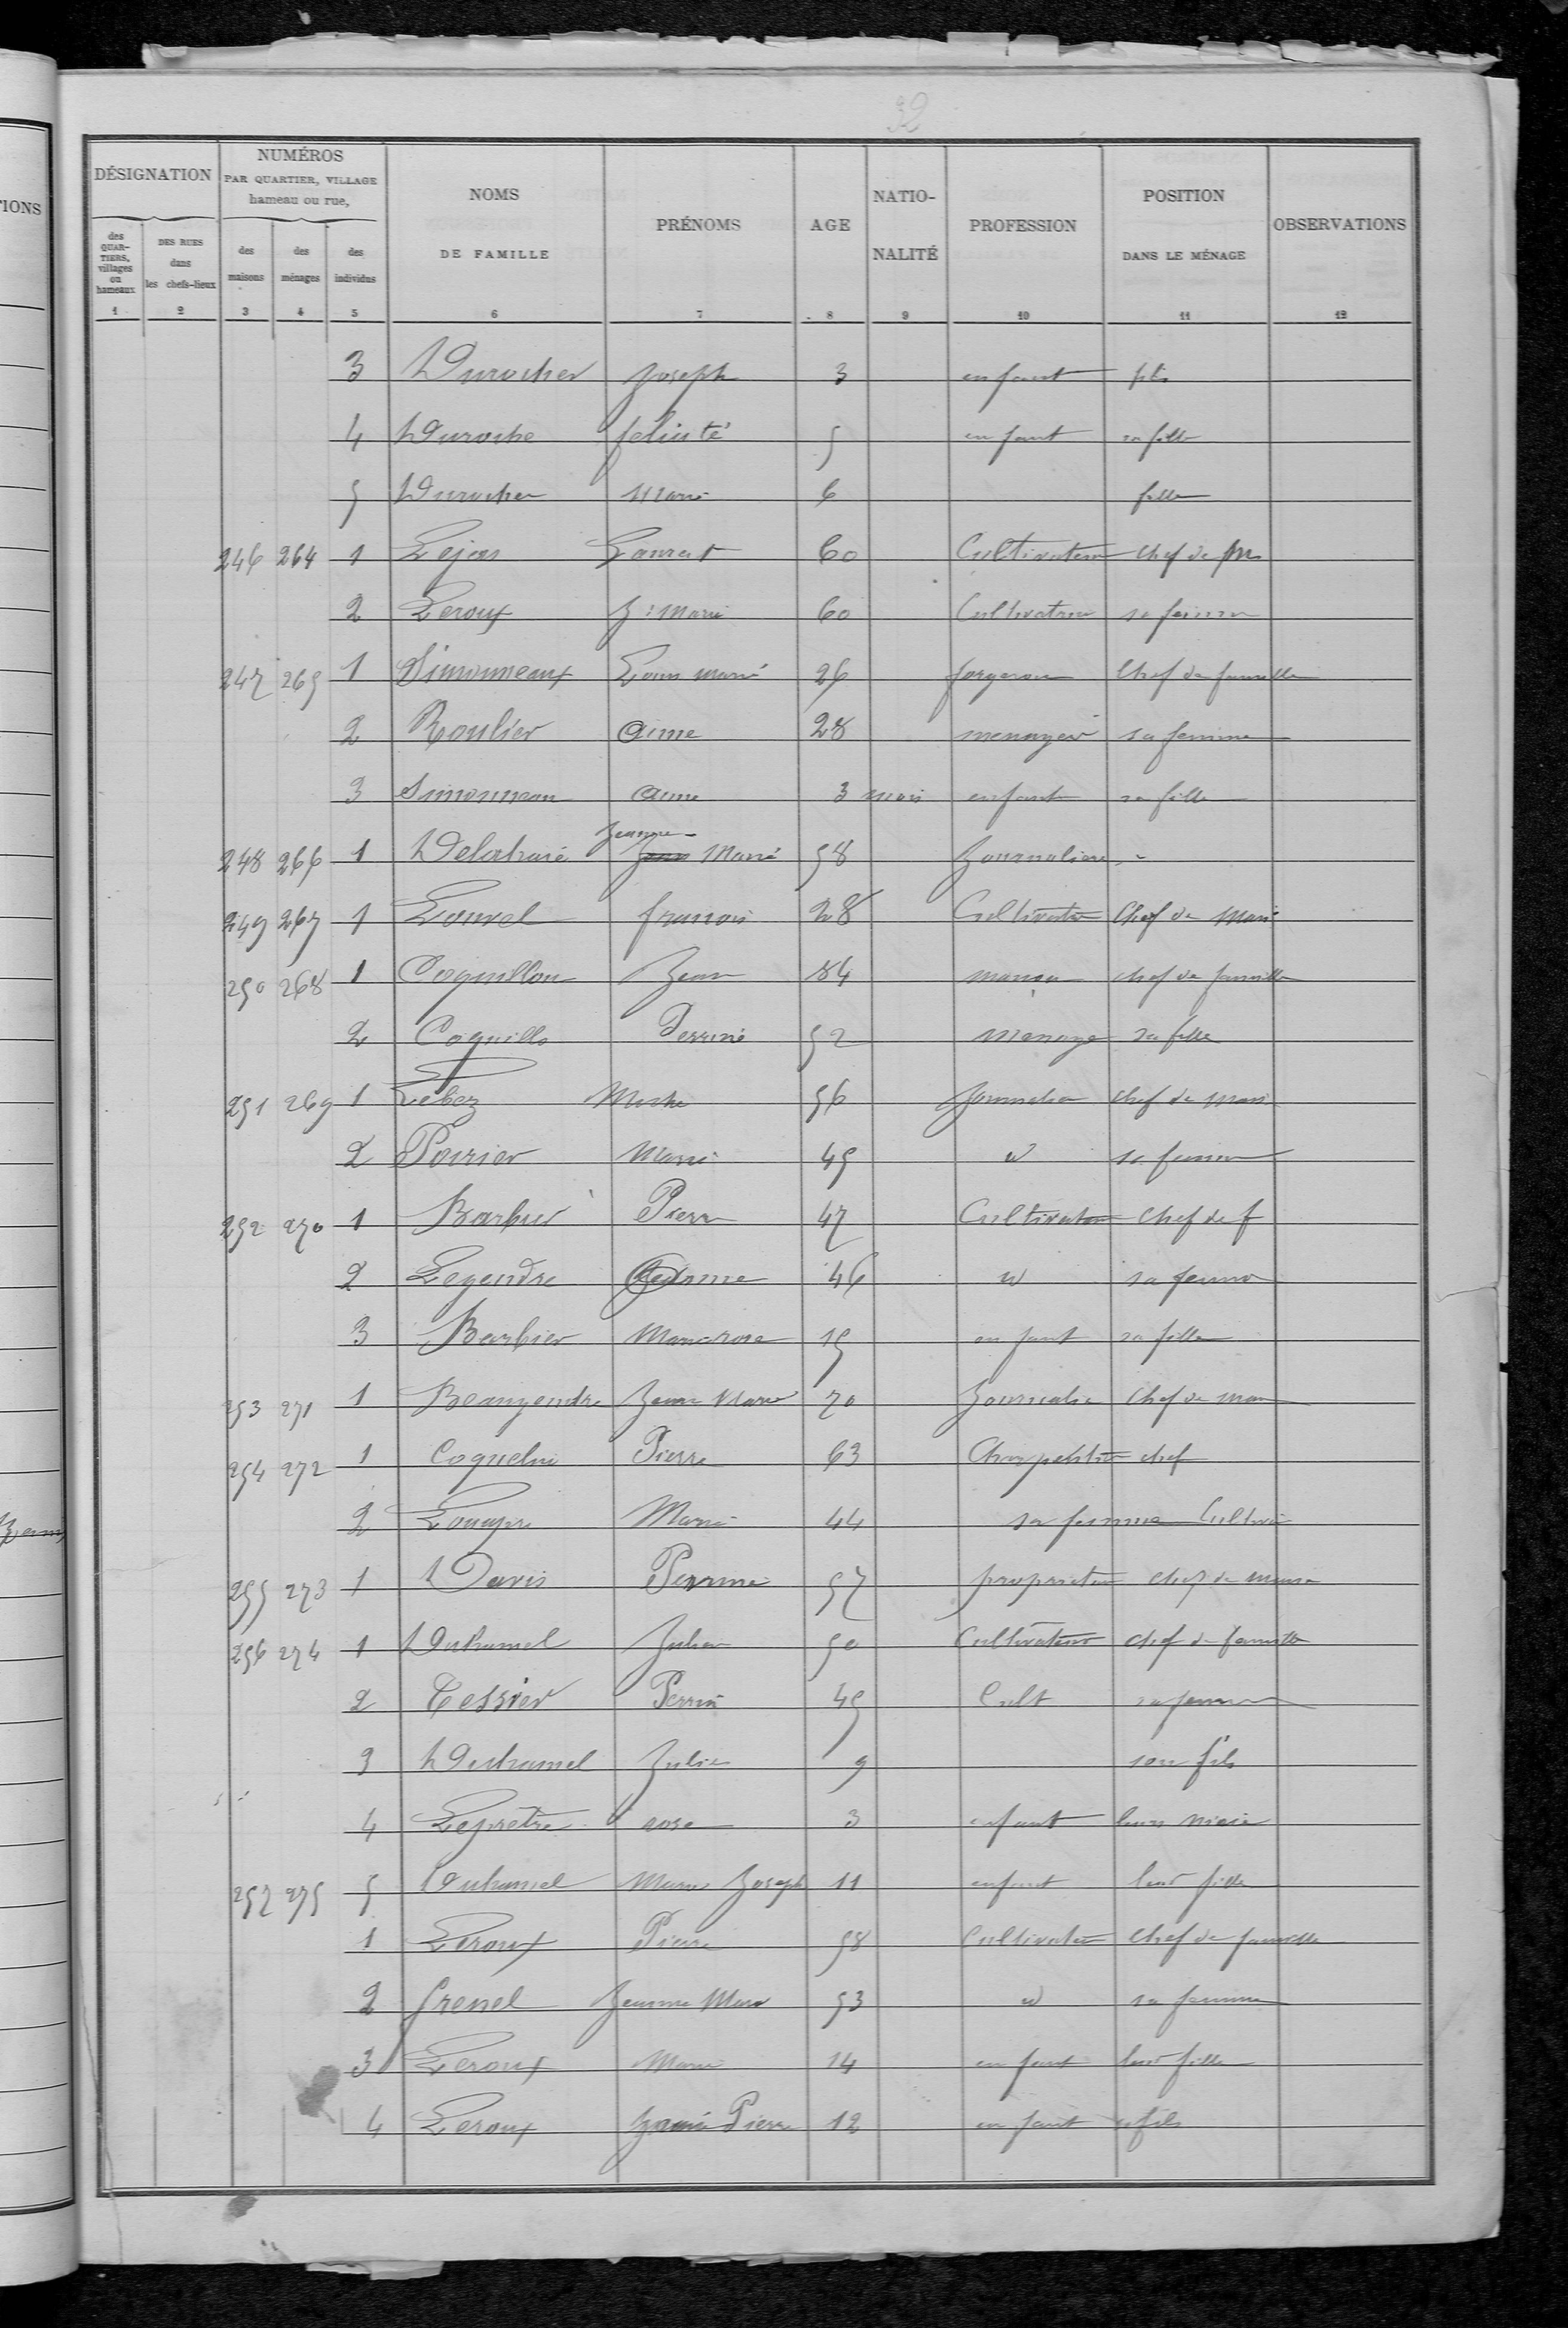 32
TIONS
DÉSIGNATION
NUMÉROS
PAR QUARTIER, VILLAGE
hameau ou rue,
des QUAR-TIERS, villages ou hameaux
DES RUES dans les chefs-lieux
des maisons
des ménages
des individus
NOMS
DE FAMILLE
PRÉNOMS
AGE
NATIO-
NALITÉ
PROFESSION
POSITION
DANS LE MÉNAGE
OBSERVATIONS
1 2 3 4 5 6 7 8 9 10 11 12
3 Durocher Joseph 3 enfant fils
4 Duroche felicité 5 enfant sa fille
5 Durocher Marie 6 fille
246 264 1 Lejas Laurent 60 Cultivateur chef de m
2 Leroux J. Marie 60 Cultivatrice sa femme
247 265 1 Simonneaux Louis marie 26 forgeron Chef de famille
2 Roulier Aime 28 menagere sa femme
3 Simonneau Aime 3 mois enfant sa fille
248 266 1 Delahaie Jeanne Marie 58 Journaliere
249 267 1 Louvel francois 28 Cultivateur Chef de Mais
250 268 1 Coquillon Jean 84 maçon chef de famille
2 Coquillo Perrine 52 menage sa fille
251 269 1 Lebez 56 Journalier chef de mais
2 Poirier Marie 45 id sa femme
252 270 1 Barbier Pierre 47 Cultivateur Chef de f
2 Legendre 46 id sa femme
3 Barbier Marie rose 15 enfant sa fille
253 271 1 Beaugendre Jeanne Marie 70 Journalie Chef de mai
254 272 1 Coquelin Pierre 63 Charpentier chef
2 Marie 44 sa femme Cultiv
255 273 1 Davis Perrine 57 proprietaire chef de maison
256 274 1 Duhamel Julien 50 Cultivateur chef de famille
2 Tessier Perrin 45 Cult sa femme
3 Duhamel Julien 9 son fils
4 Leprêtre rose 3 enfant leur niece
257 275 5 Duhamel Marie Joseph 11 enfant leur fille
1 Leroux Pierre 58 Cultivateur Chef de famille
2 Grenel Jeanne Marie 53 id sa femme
3 Leroux Marie 14 enfant leur fille
4 Leroux Pierre 12 enfant fils